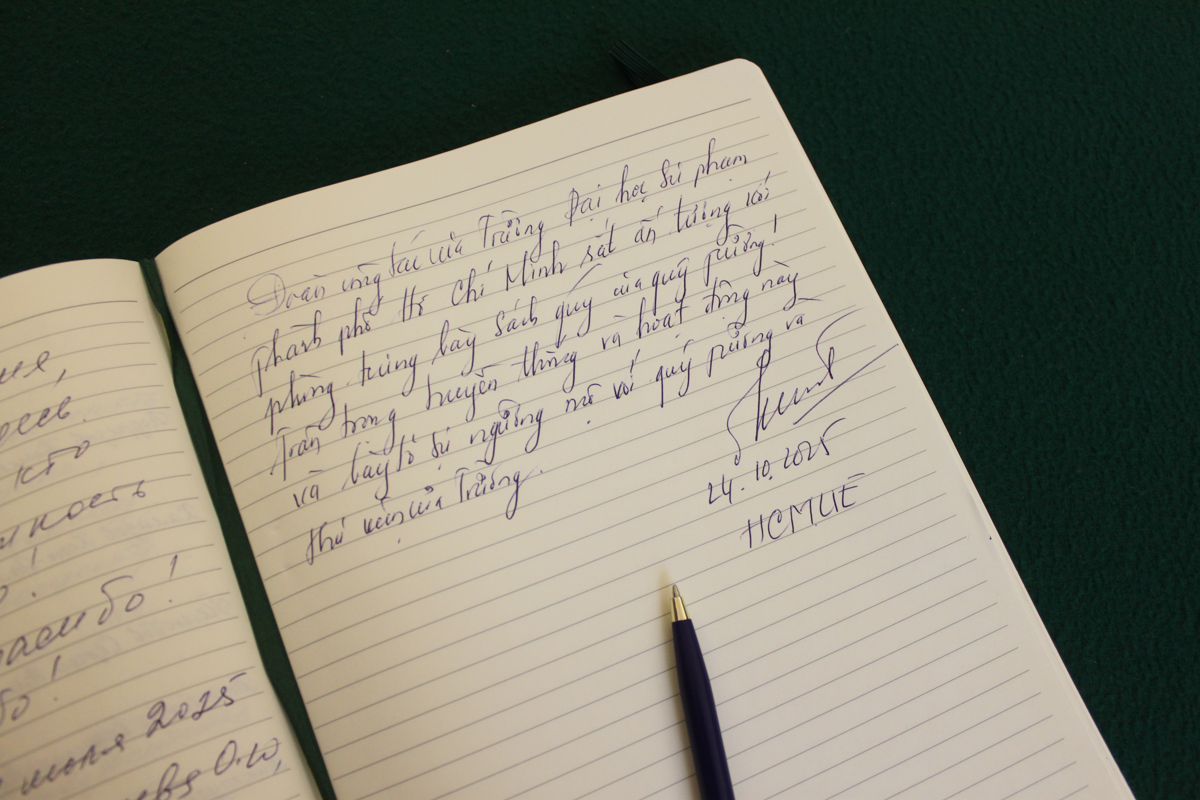 кто
спасибо!
июля 2025
Đoàn công tác của Trường Đại học Sư phạm
thành phố Hồ Chí Minh rất ấn tượng với
phòng trưng bày sách quý của quý trường!
Trân trọng truyền thống và hoạt động này
và bày tỏ sự ngưỡng mộ với quý trường và
thư viện của Trường.
24.10.2025
HCMUE